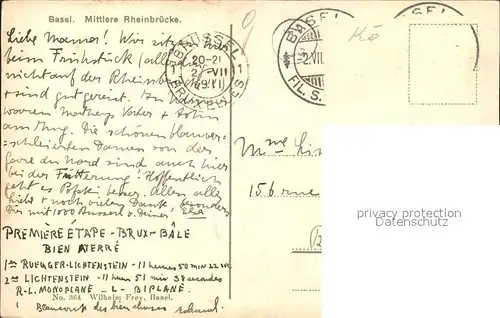 Basel. Mittlere Rheinbrücke.
Liebe Mama! Wir sitzen hier
beim Frühstück (allerdings
nicht auf der Rheinbrücke)
+ sind gut gereist. In
waren Vorher + Sohn
am Zug. Die schönen blauver-
schleierten Damen von der
Gare du Nord sind auch hier
bei der Fütterung! Hoffentlich
geht es besser. Alles alles
Liebe + noch vielen Dank, besonders
Dir mit 1000 Bussern v. Deiner Elsa
PREMIÈRE ÉTAPE - BRUX - BÂLE
BIEN ATERRÉ
1er RUEGGER-LICHTENSTEIN - 11 heures 50 min 22 sec
2me LICHTENSTEIN - 11 heu 51 min 38 secondes
R-L. MONOPLANE - L - BIPLANE
No. 364 Wilhelm Frey, Basel.
des bien choses
BRÜSSEL
20-21
2 VII
1
BRUXELLES
BASEL
-2.VII
FIL. S.
Mme
156 rue
privacy protection
Datenschutz